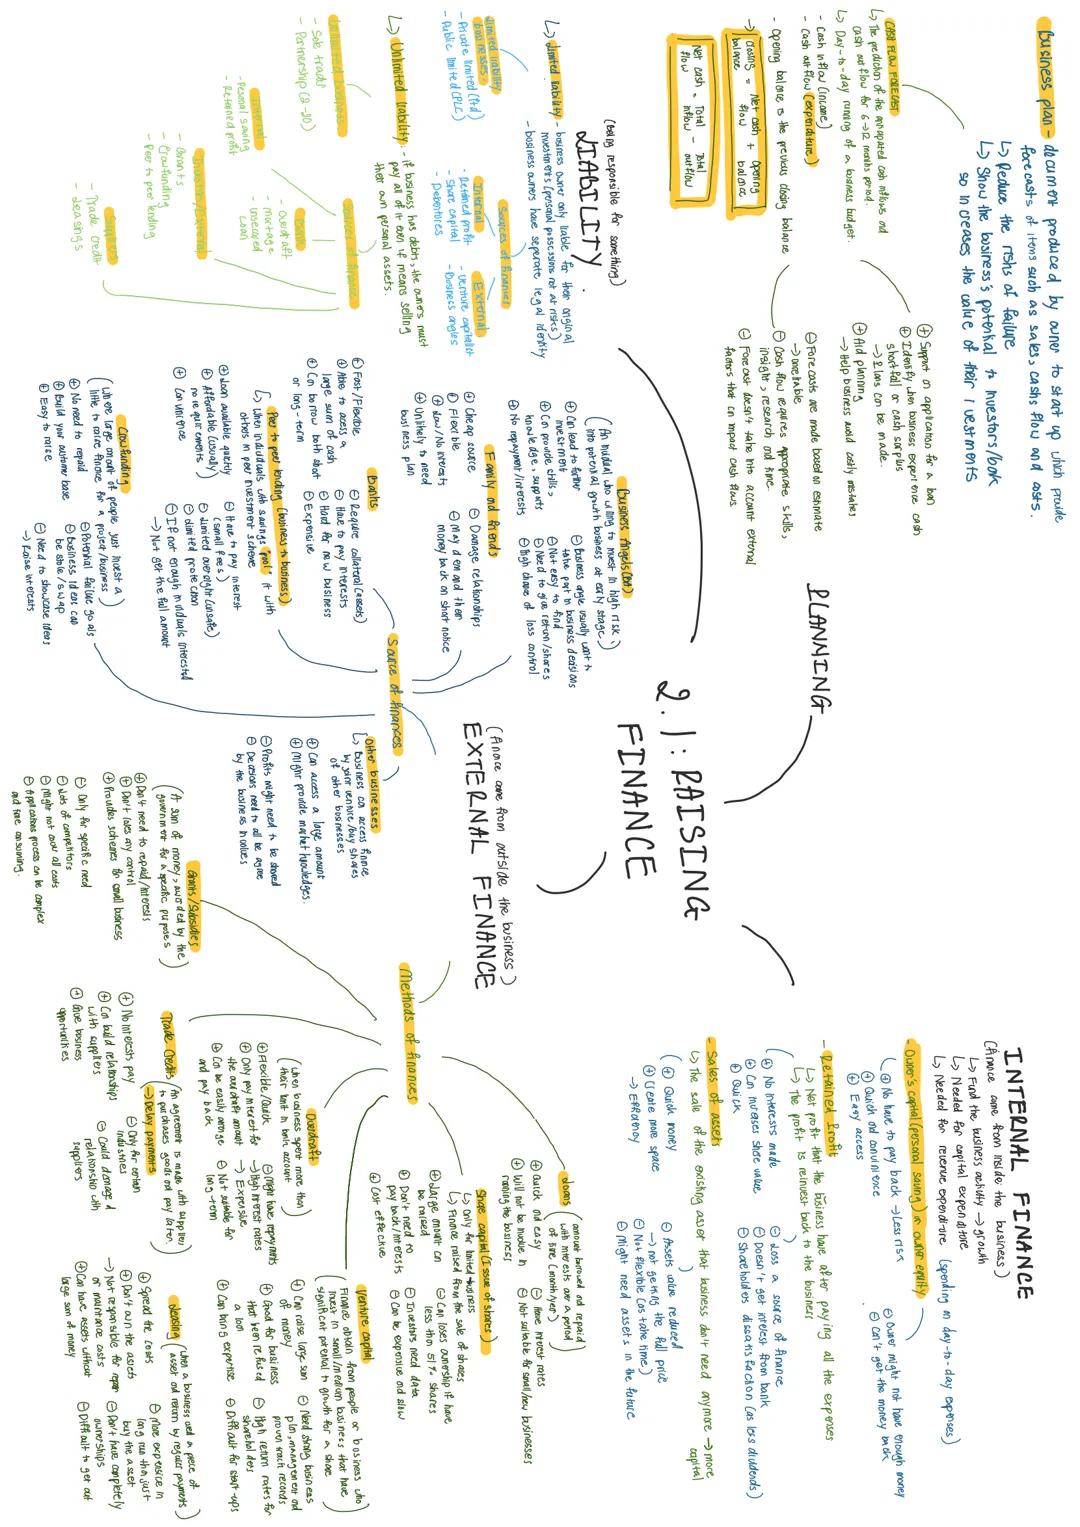 2.1: RAISING
FINANCE
PLANNING
Business plan - document produced by owner to start up which provide
forecasts of items such as sales, cashs flow and costs.
↳ Reduce the risks of failure
↳ Show the business's potential to investors/bank
so increases the value of their ivestments
CASH FLOW FORECAST
↳ The prediction of the anticapated cash inflows and
cash outflow for 6-12 months period.
↳ Day-to-day running of a business budget.
- Cash inflow (income)
- Cash outflow (expenditure)
- Opening balance is the previous closing balance
Closing balance = Net cash flow + opening balance
Net cash flow = Total inflow - Total outflow
⊕ Support an application for a loan
⊕ Identify when business experience cash
shortfall or cash surplus
→ Plans can be made.
⊕ Aid planning
→ Help business avoid costly mistakes
⊖ Forecasts are made based on estimate
→ unreliable
⊖ Cash flow requires appropriate skills,
insight, research and time.
⊖ Forecast doesn't take into account external
factors that can impact cash flows.
(Being responsible for something)
LIABILITY
↳ Limited liability - business owner only liable for their original
investments (personal possessions not at risks)
- business owners have seperate legal identity
Limited liability
businesses:
- Private limited (ltd)
- Public limited (PLC)
Sources of finances
Internal
- Retained profit
- Share capital
- Debentures
External
- Venture capitalist
- Business angles
↳ Unlimited liability: - if business has debts, the owners must
pay all of it even if means selling
their own personal assets.
- Sole trader
- Partnership (2-20)
Sources of finance
Internal
- Personal saving
- Retained profit
Bank
- Overdraft
- mortage
- unsecured
loan
- Grants
- Crowdfunding
- Peer to peer lending
- Trade credit
- Leasings
(Finance come from outside the business)
EXTERNAL FINANCE
Source of finances
Business Angels (BA)
(An individual who willing to invest in high risk
into potential growth business at early stage)
⊕ Can lead to further
investment
⊕ Can provide skills,
knowledge, supports
⊕ No repayment/interests
⊖ Business angle usually want to
take part in business decisions
⊖ Not easy to find
⊖ Need to give return/shares
⊖ High chance of loss control
Family and friends
⊕ Cheap source
⊕ Flexible
⊕ Low/No interests
⊕ Unlikely to need
business plan
⊖ Damage relationships
⊖ May demand their
money back on short notice
Banks
⊕ Fast/Flexible
⊕ Able to access a
large sum of cash
⊕ Can borrow both short
or long-term
⊖ Require collateral (assets)
⊖ Have to pay interests
⊖ Hard for new business
⊖ Expensive
Peer to peer lending (business to business)
↳ When individuals with savings "pool" it with
others in peer investment scheme
⊕ Loan available quickly
⊕ Affordable (usually)
no requirements
⊕ Convinence
⊖ Have to pay interest
(small fees)
⊖ Limited oversight (unsafe)
⊖ Limited protection
⊖ If not enough individuals interested
→ Not get the full amount
Crowfunding
(Where large amount of people, just invest a
little to raise finance for a project/business)
⊕ No need to repaid
⊕ Build your customer base
⊕ Easy to raise
⊖ Potential failure goals
⊖ Business ideas can
be stole/swap
⊖ Need to showcase ideas
→ Raise interests
Other businesses
↳ Business can access finance
by joint venture/buy shares
of other businesses
⊕ Can access a large amount
⊕ Might provide market knowledges.
⊖ Profits might need to be shared
⊖ Decisions need to all be agree
by the business involves
Methods of finances
Grants/Subsidies
(A sum of money, awarded by the
government for a specific purposes)
⊕ Don't need to repaid/interests
⊕ Don't loses any control
⊕ Provides schemes for small business
⊖ Only for specific need
⊖ Lots of competitors
⊖ Might not cover all costs
⊖ Applications process can be complex
and time consuming.
Trade Credits
(An agreement is made with suppliers
to purchases goods and pay later)
→ Delay payments
⊕ No interests pay
⊕ Can build relationships
with suppliers
⊕ Give business
opportunities
⊖ Only for certain
industries
⊖ Could damaged
relationship with
suppliers
Overdraft
(When business spent more than
their limit in bank account)
⊕ Flexible/Quick
⊕ Only pay interest for
the overdraft amount
⊕ Can be easily arrange
and pay back
⊖ Might have repayments
→ High interest rates
→ Expensive
⊖ Not suitable for
long-term
Loans
(amount borrowed and repaid
with interests over a period
of time (month/year))
⊕ Quick and easy
⊕ Will not be involve in
running the business
⊖ Have interest rates
⊖ Not suitable for small/new businesses
Share capital (Issue of shares)
↳ Only for limited business
↳ Finance raised from the sale of shares
⊕ Large amount can
be raised
⊕ Don't need to
pay back/interests
⊕ Cost effective
⊖ Can loses ownership if have
less than 51% shares
⊖ Investors need data
⊖ Can be expensive and slow
Venture capital
(Finance obtain from people or business who
invest in small/medium business that have
significant potential to growth for a share)
⊕ Can raise large sum
of money
⊕ Good for business
that been refused
a loan
⊕ Can bring expertise
⊖ Need strong business
plan, management and
proven track records
⊖ High return rates for
shareholders
⊖ Difficult for start-ups
Leasing
(When a business used a piece of
asset and return by regular payments)
⊕ Spread the costs
⊕ Don't own the assets
→ Not responsible for repair
or maintance costs
⊕ Can have assets without
large sum of money
⊖ More expensive in
long run than just
buy the asset
⊖ Don't have completely
ownerships
⊖ Difficult to get out
INTERNAL FINANCE
(Finance come from inside the business)
↳ Fund the business activity → growth
↳ Needed for capital expenditure
↳ Needed for revenue expenditure (spending on day-to-day expenses)
- Owner's capital (personal saving) or owner equity
⊕ No have to pay back → Less risk
⊕ Quick and convinience
⊕ Easy access
⊖ Owner might not have enough money
⊖ Can't get the money back
- Retained Profit
↳ Net profit that the business have after paying all the expenses
↳ The profit is reinvest back to the business
⊕ No interests made
⊕ Can increases share value
⊕ Quick
⊖ Loss a source of finance
⊖ Doesn't get interest from bank
⊖ Shareholders dissatisfaction (as less dividends)
- Sales of assets
↳ The sale of the existing asset that business don't need anymore → more
capital
⊕ Quick money
⊕ Create more space
→ Efficiency
⊖ Assets value reduced
→ not getting the full price
⊖ Not flexible (as take time)
⊖ Might need assets in the future